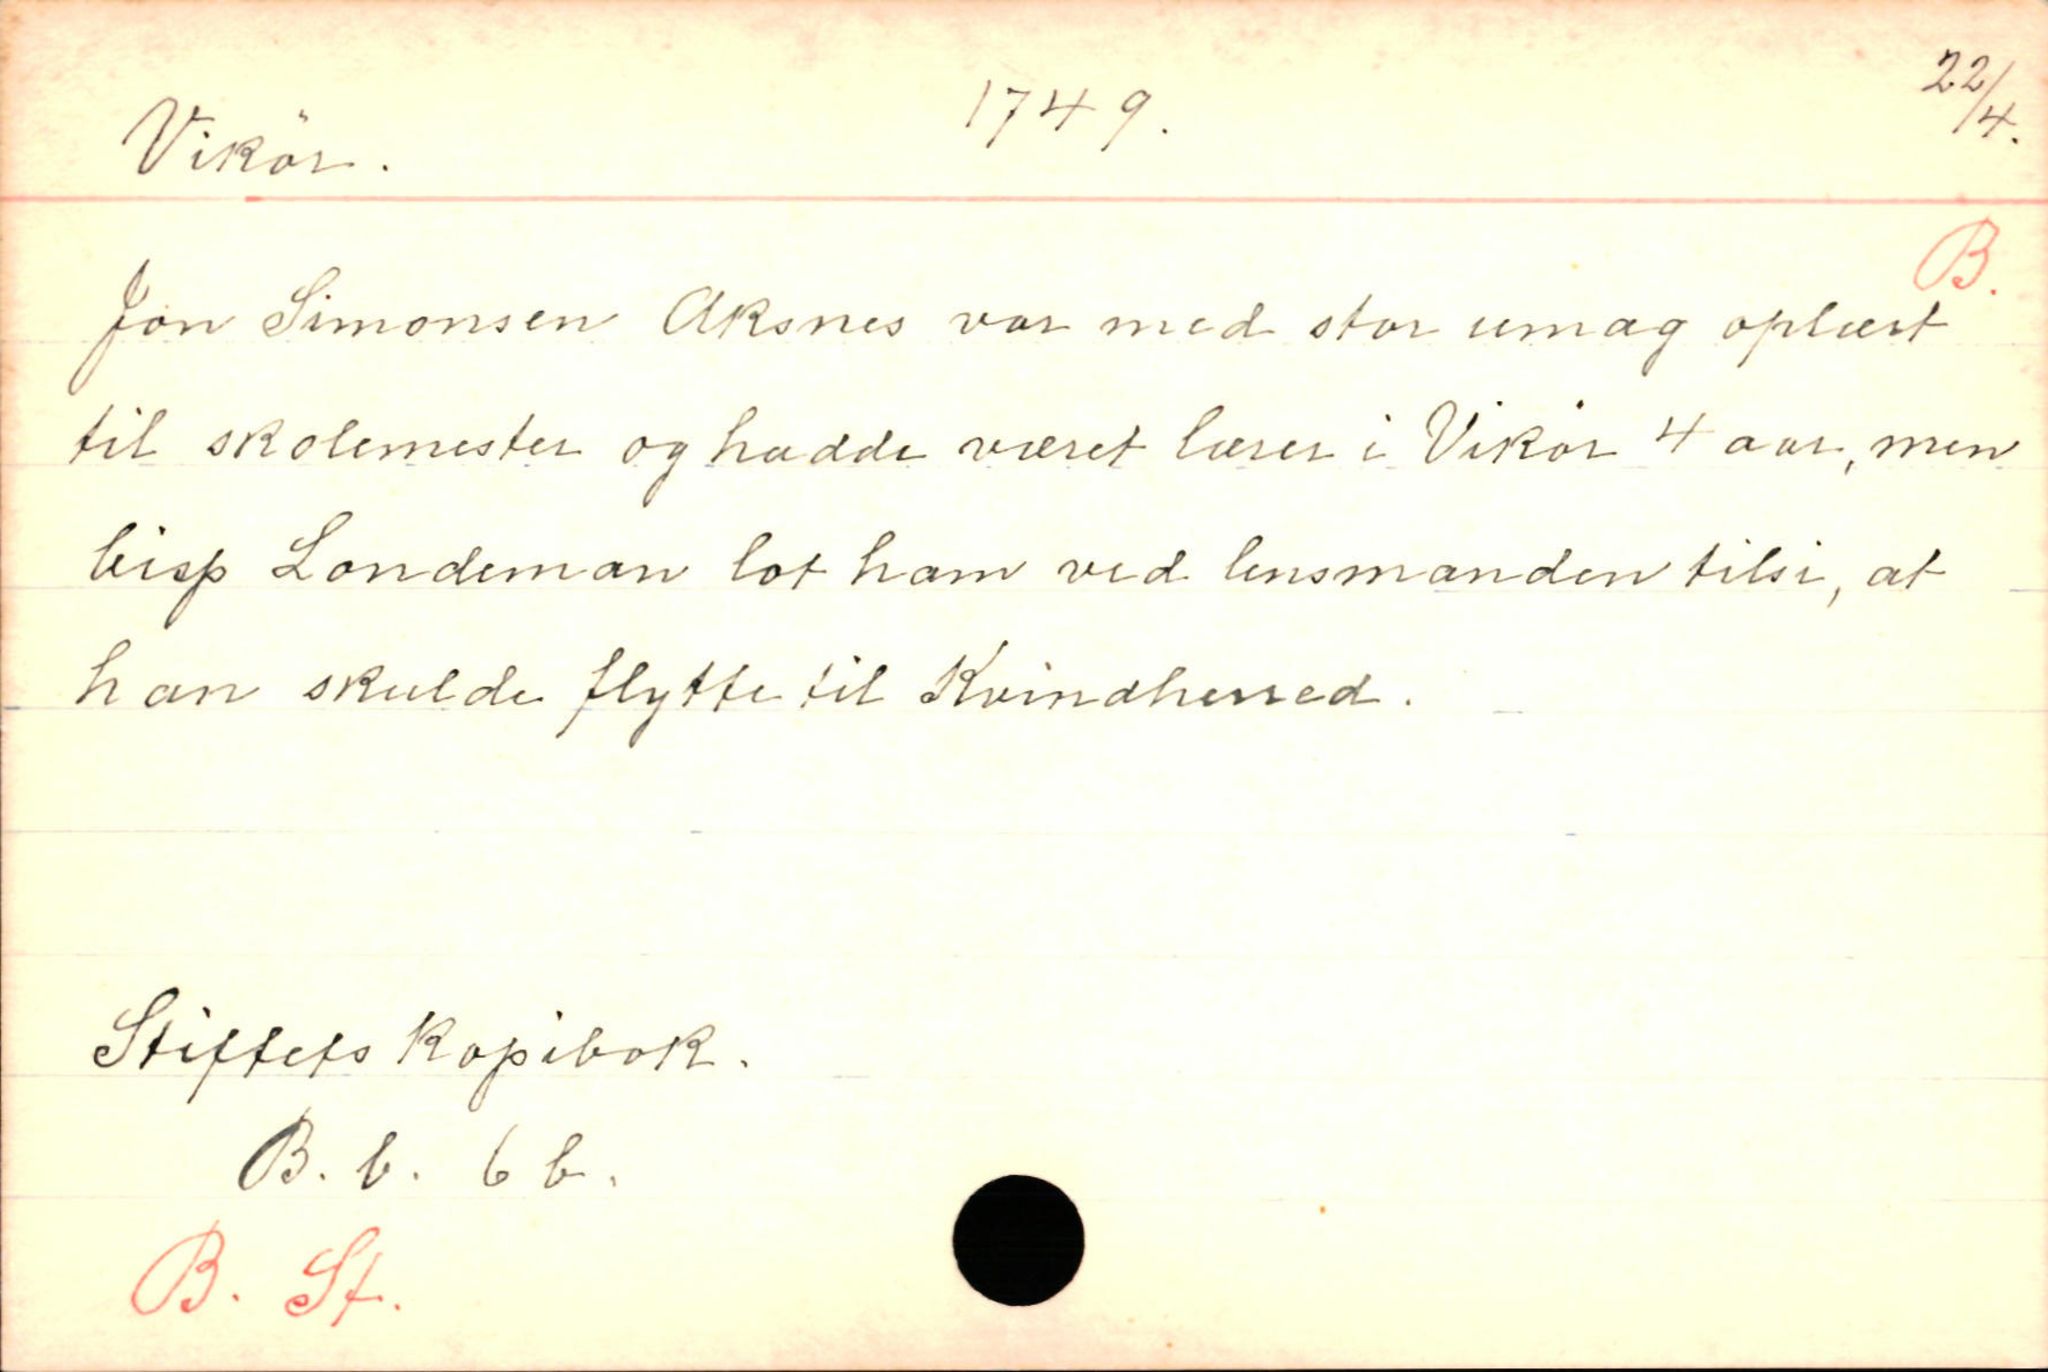 Vikör. 1749. 22/4.
B.
Jon Simonsen Aksnes var med stor umag oplært
til skolemester og hadde været lærer i Vikör 4 aar, men
bisp Londeman lot ham ved lensmanden tilsi, at
han skulde flytte til Kvindherred.
Stiftets Kopibok.
B. b. 6 b.
B. St.